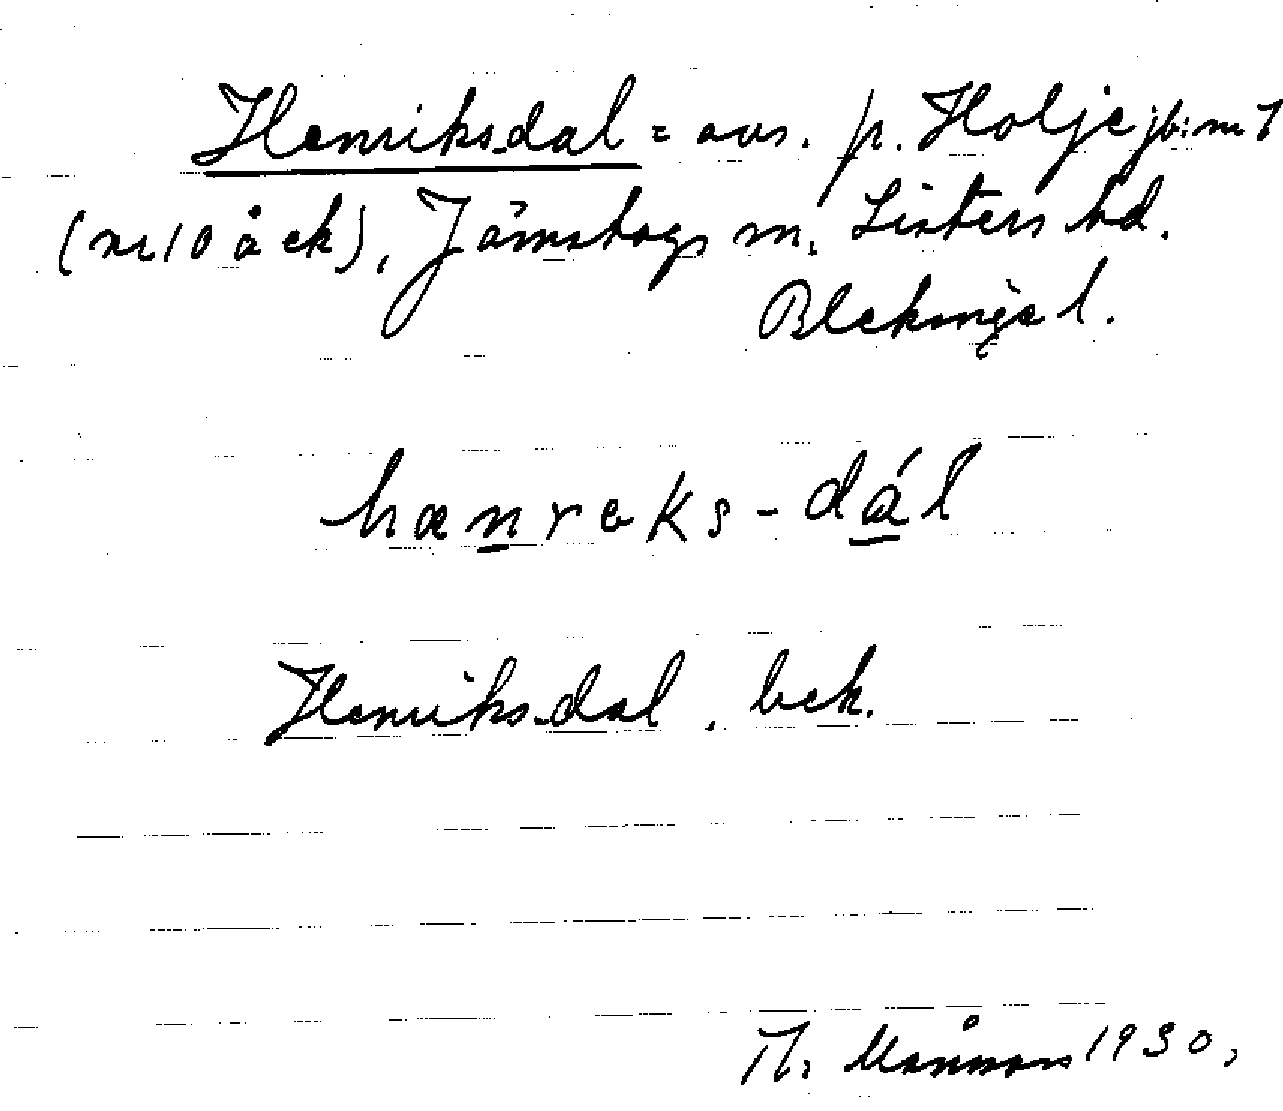 Henriksdal = avs. p. Holje jb: nr 7
(nr 10 å ek), Jämshogs sn, Listers hd.
Blekinge l.
hænreks-dál
Henriksdal. bek.
1930.